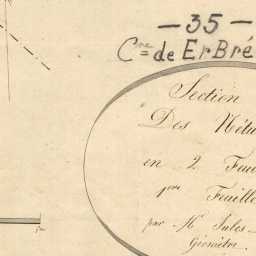 — 35 —
Cne de ErBré
Section
Des
en 2 Feui
1ère Feuille
par Mr Jules
Géomètre